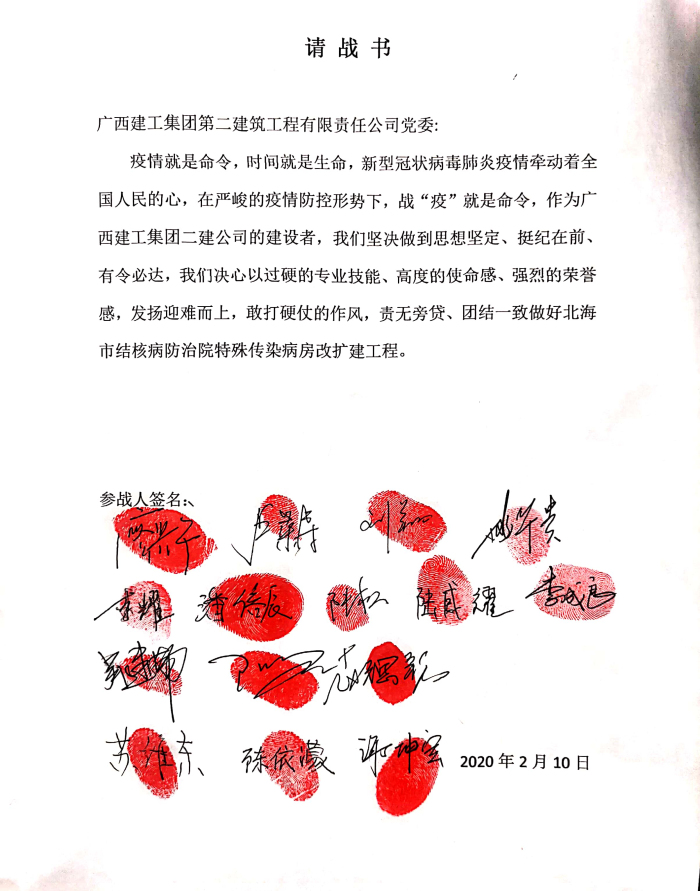 请战书
广西建工集团第二建筑工程有限责任公司党委:
疫情就是命令，时间就是生命，新型冠状病毒肺炎疫情牵动着全
国人民的心，在严峻的疫情防控形势下，战“疫”就是命令，作为广
西建工集团二建公司的建设者，我们坚决做到思想坚定、挺纪在前、
有令必达，我们决心以过硬的专业技能、高度的使命感、强烈的荣誉
感，发扬迎难而上，敢打硬仗的作风，责无旁贷、团结一致做好北海
市结核病防治院特殊传染病房改扩建工程。
参战人签名:、
李耀 潘信辰 陆松 陆威耀 李成良
苏维东 陈依濛 谢坤宝 2020年2月10日